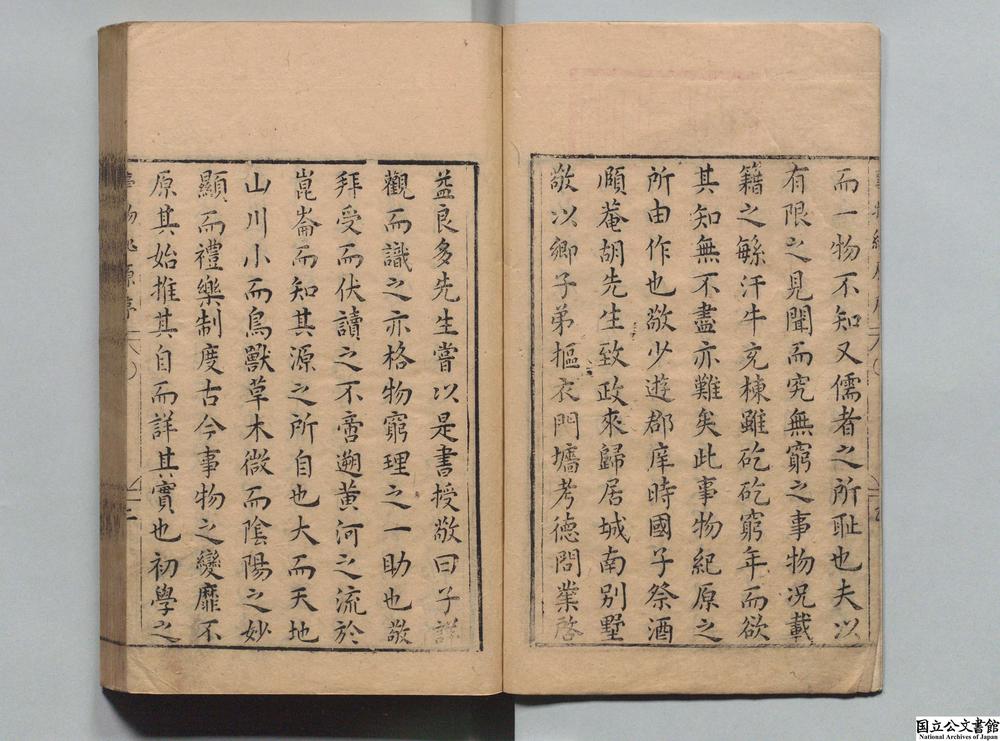 而一物不知又儒者之所耻也夫以
有限之見聞而究無窮之事物况載
籍之繇汗牛充棟雖矻矻窮年而欲
其知無不盡亦難矣此事物紀原之
所由作也敬少遊郡庠時國子祭酒
頤菴胡先生致政來歸居城南别墅
敬以鄉子弟摳衣門墻考德問業啓
益良多先生嘗以是書授敬曰子詳
觀而識之亦格物窮理之一助也敬
拜受而伏讀之不啻遡黄河之流於
崑崙而知其源之所自也大而天地
山川小而鳥獸草木微而陰陽之妙
顯而禮樂制度古今事物之變靡不
原其始推其自而詳其實也初學之
二
国立公文書館
National Archives of Japan